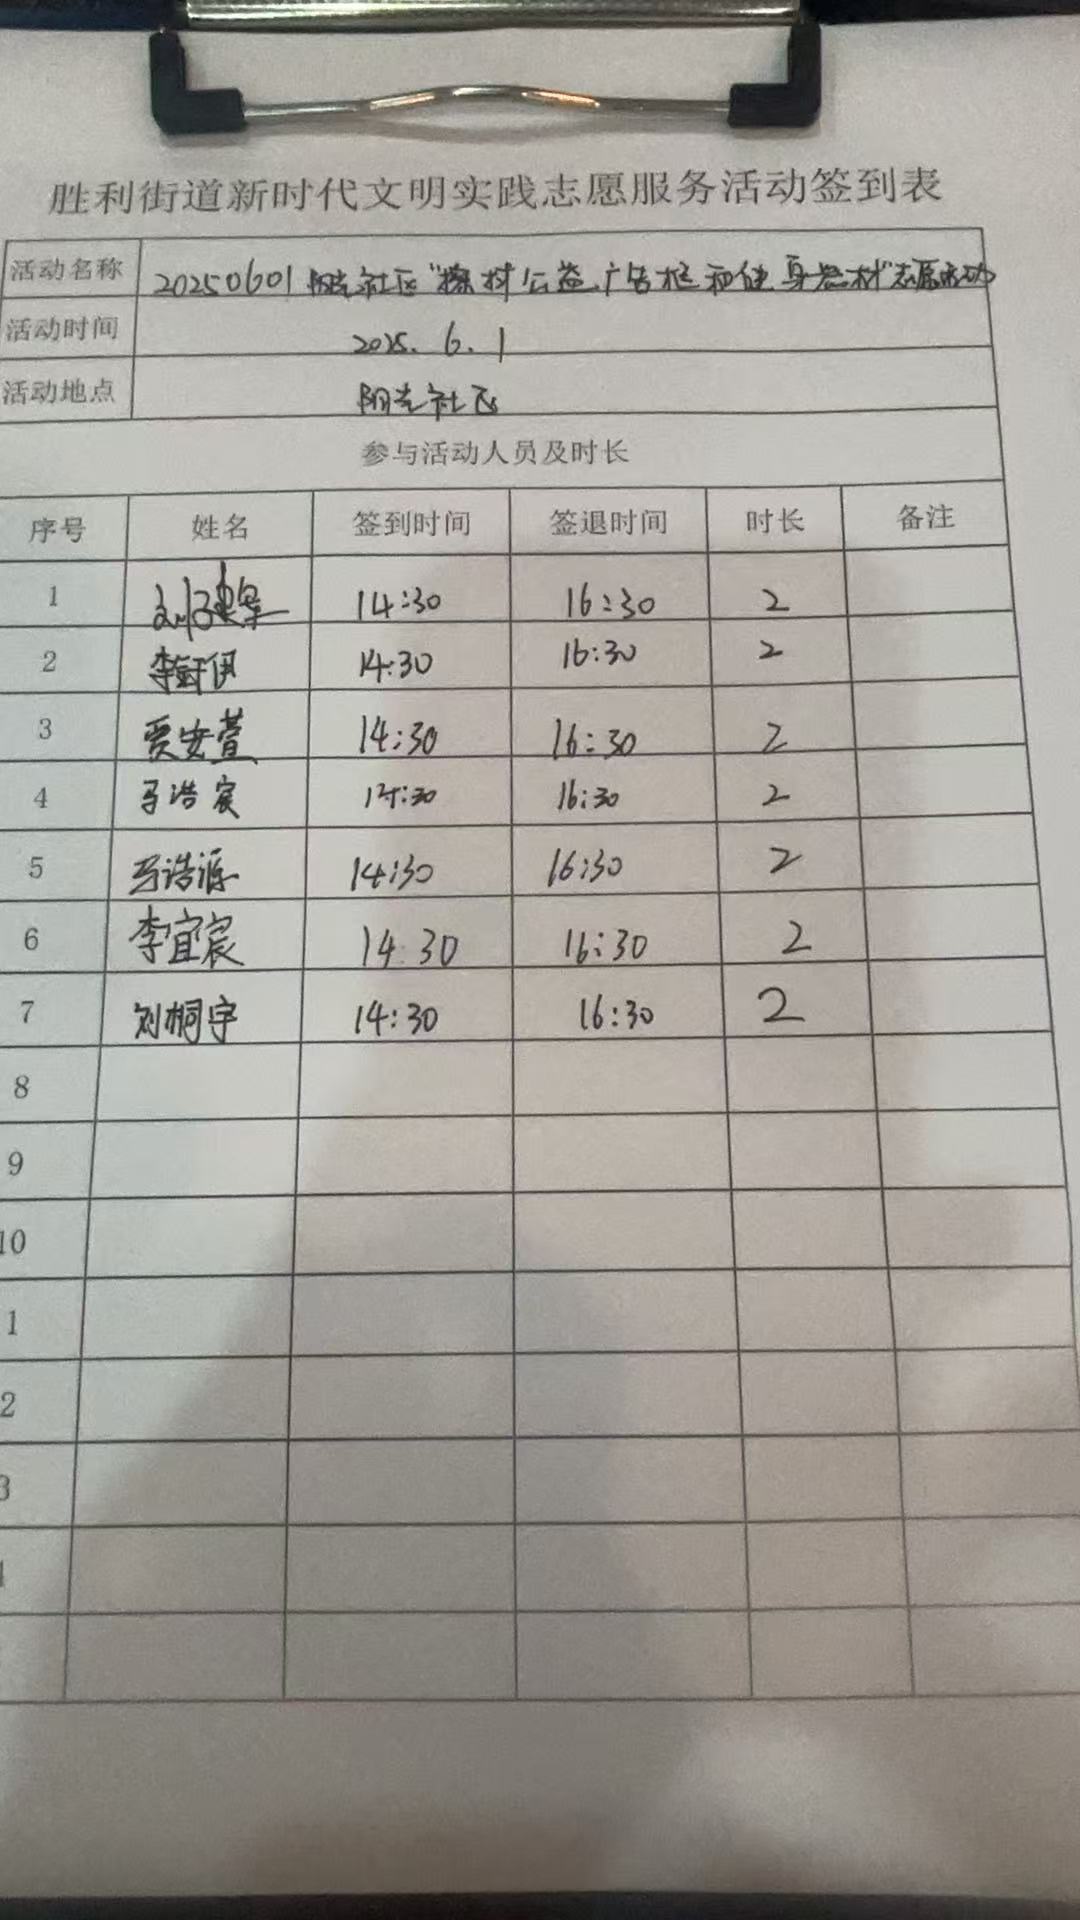 胜利街道新时代文明实践志愿服务活动签到表
活动名称 20250601 阳光社区“擦拭公益广告框和健身器材”志愿活动
活动时间 2025. 6. 1
活动地点 阳光社区
参与活动人员及时长
序号 姓名 签到时间 签退时间 时长 备注
1 14:30 16:30 2
2 李 伊 14:30 16:30 2
3 贾安萱 14:30 16:30 2
4 马浩宸 14:30 16:30 2
5 马浩源 14:30 16:30 2
6 李宜宸 14:30 16:30 2
7 刘桐宇 14:30 16:30 2
8
9
10
1
2
3
4